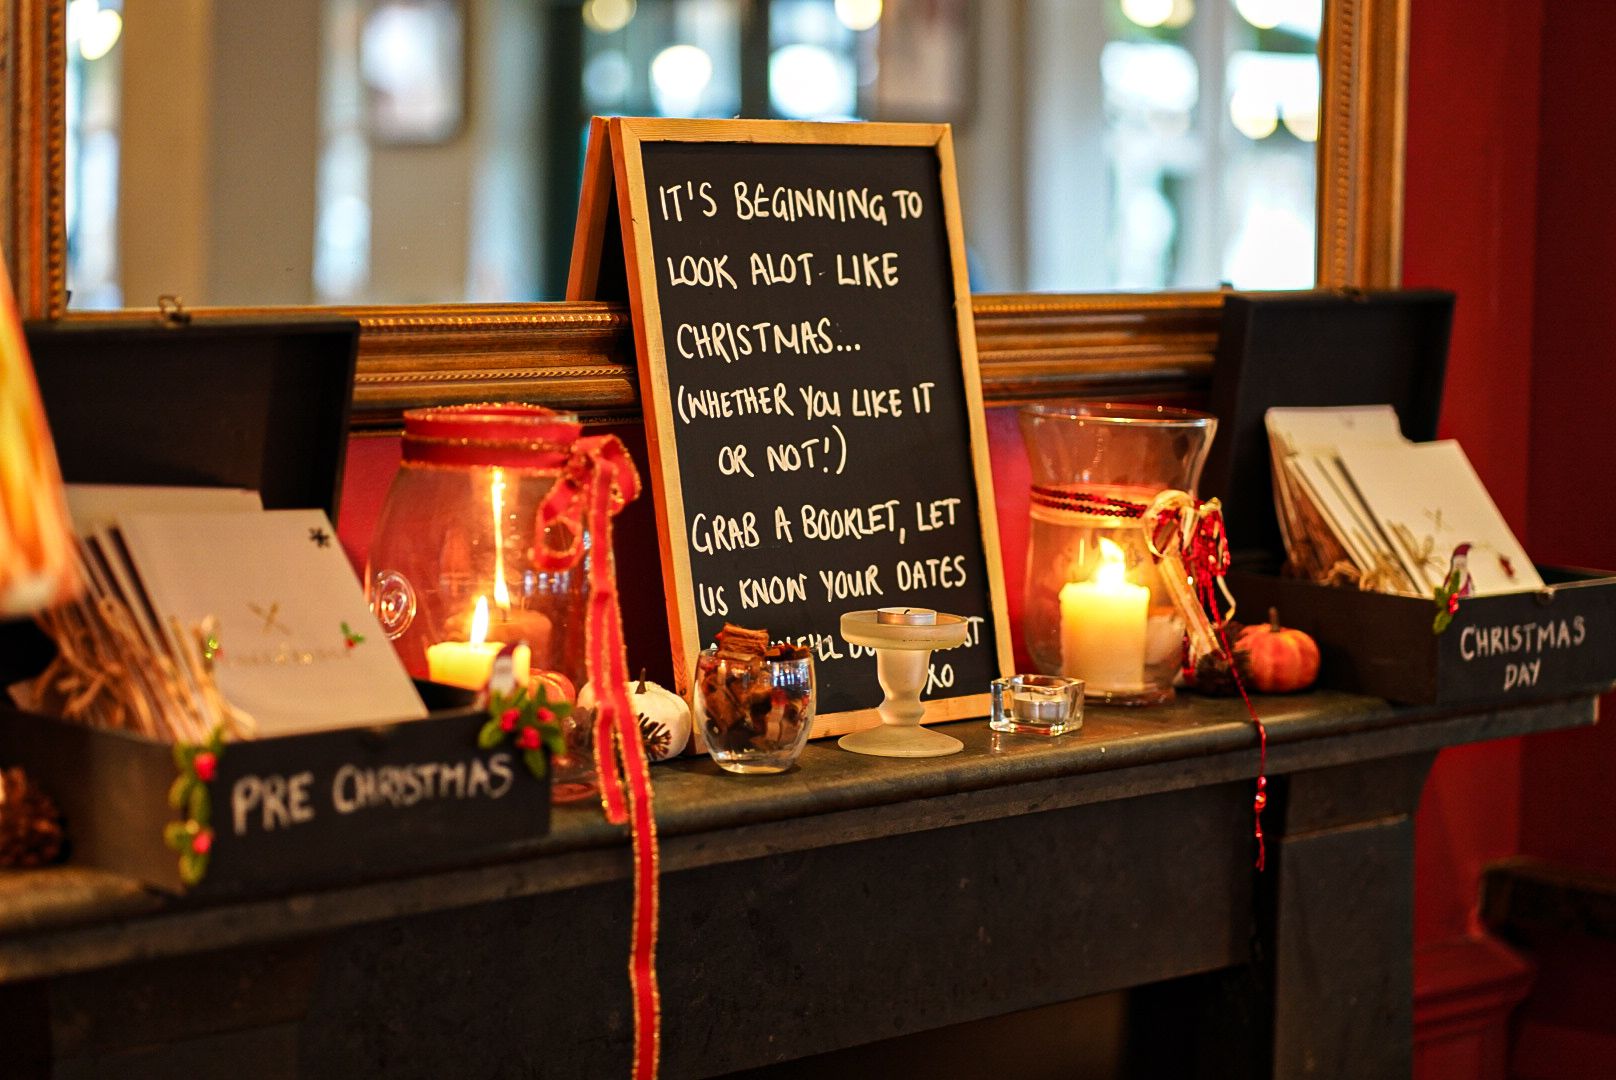 IT'S BEGINNING TO
LOOK ALOT LIKE
CHRISTMAS...
(WHETHER YOU LIKE IT
OR NOT!)
GRAB A BOOKLET, LET
US KNOW YOUR DATES
WE'LL
XO
PRE CHRISTMAS
CHRISTMAS
DAY